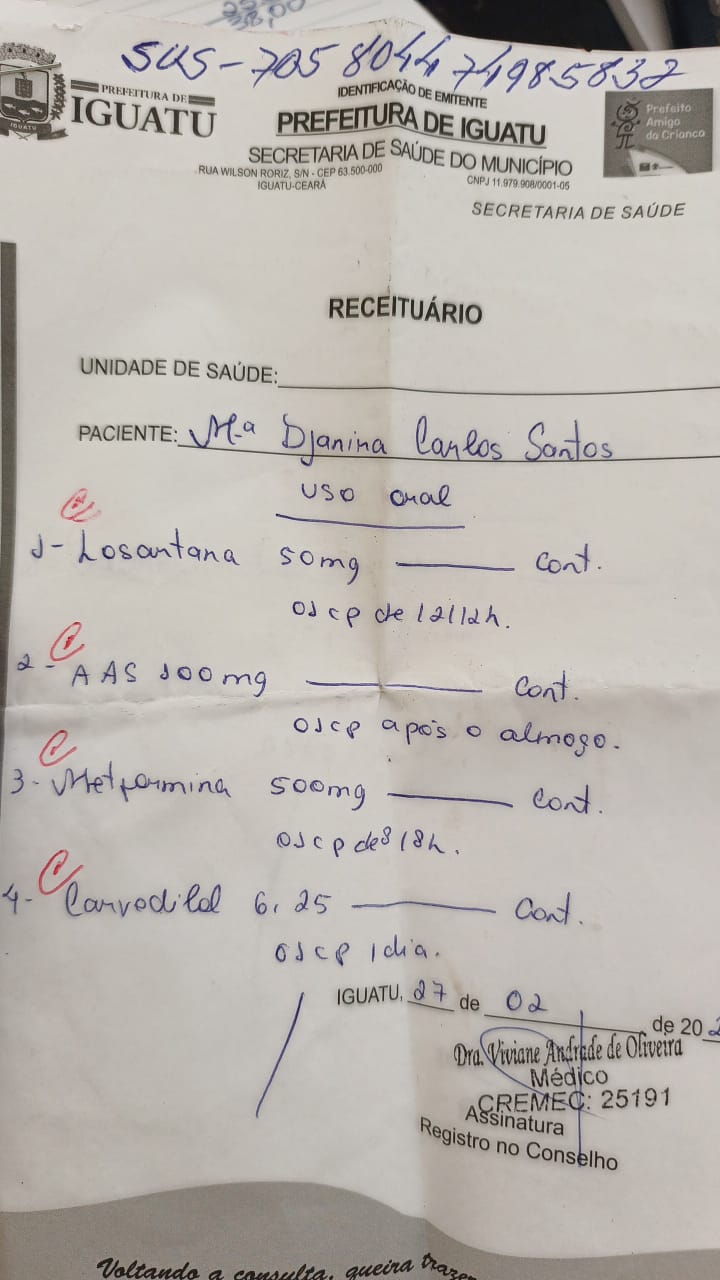 SUS - 705 8044 74985832
IDENTIFICAÇÃO DE EMITENTE
PREFEITURA DE
IGUATU
PREFEITURA DE IGUATU
SECRETARIA DE SAÚDE DO MUNICÍPIO
RUA WILSON RORIZ, S/N - CEP 63.500-000
IGUATU-CEARÁ
CNPJ 11.979.908/0001-05
Prefeito
Amigo
da Criança
IGUATU
SECRETARIA DE SAÚDE
RECEITUÁRIO
UNIDADE DE SAÚDE:
PACIENTE: Mª Djanina Carlos Santos
uso oral
1- Losartana 50mg cont.
01 cp de 12/12h.
2- AAS 100mg cont.
01 cp após o almoço.
3- Metformina 500mg cont.
01 cp de 8/8h.
4- Carvedilol 6,25 cont.
01 cp 1 dia.
IGUATU, 27 de 02 de 202
Dra. Viviane Andrade de Oliveira
Médico
CREMEC: 25191
Assinatura
Registro no Conselho
Voltando a consulta, queira